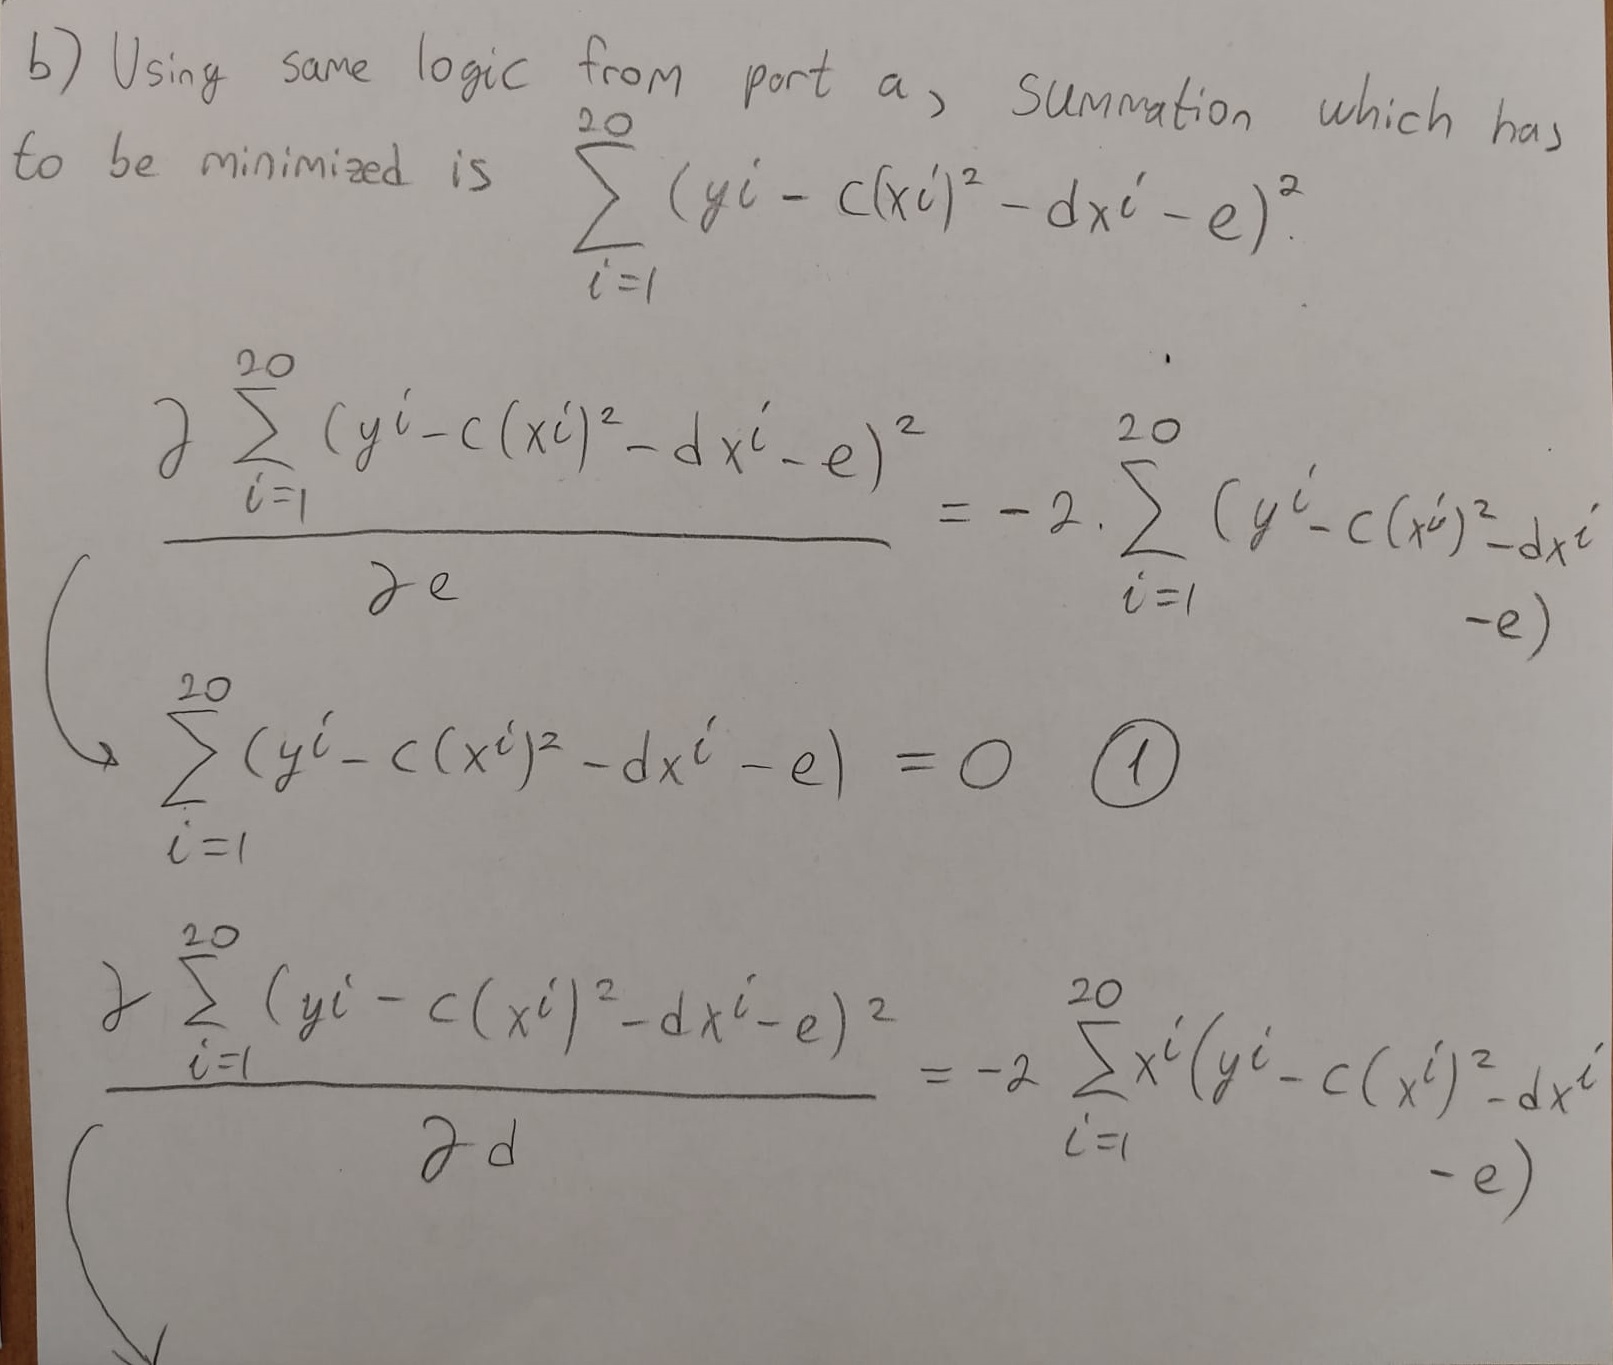 b) Using same logic from part a, summation which has
to be minimized is $\sum_{i=1}^{20} (y^i - c(x^i)^2 - dx^i - e)^2$.
$\frac{\partial \sum_{i=1}^{20} (y^i - c(x^i)^2 - dx^i - e)^2}{\partial e} = -2 \cdot \sum_{i=1}^{20} (y^i - c(x^i)^2 - dx^i - e)$
$\sum_{i=1}^{20} (y^i - c(x^i)^2 - dx^i - e) = 0$ ①
$\frac{\partial \sum_{i=1}^{20} (y^i - c(x^i)^2 - dx^i - e)^2}{\partial d} = -2 \sum_{i=1}^{20} x^i (y^i - c(x^i)^2 - dx^i - e)$